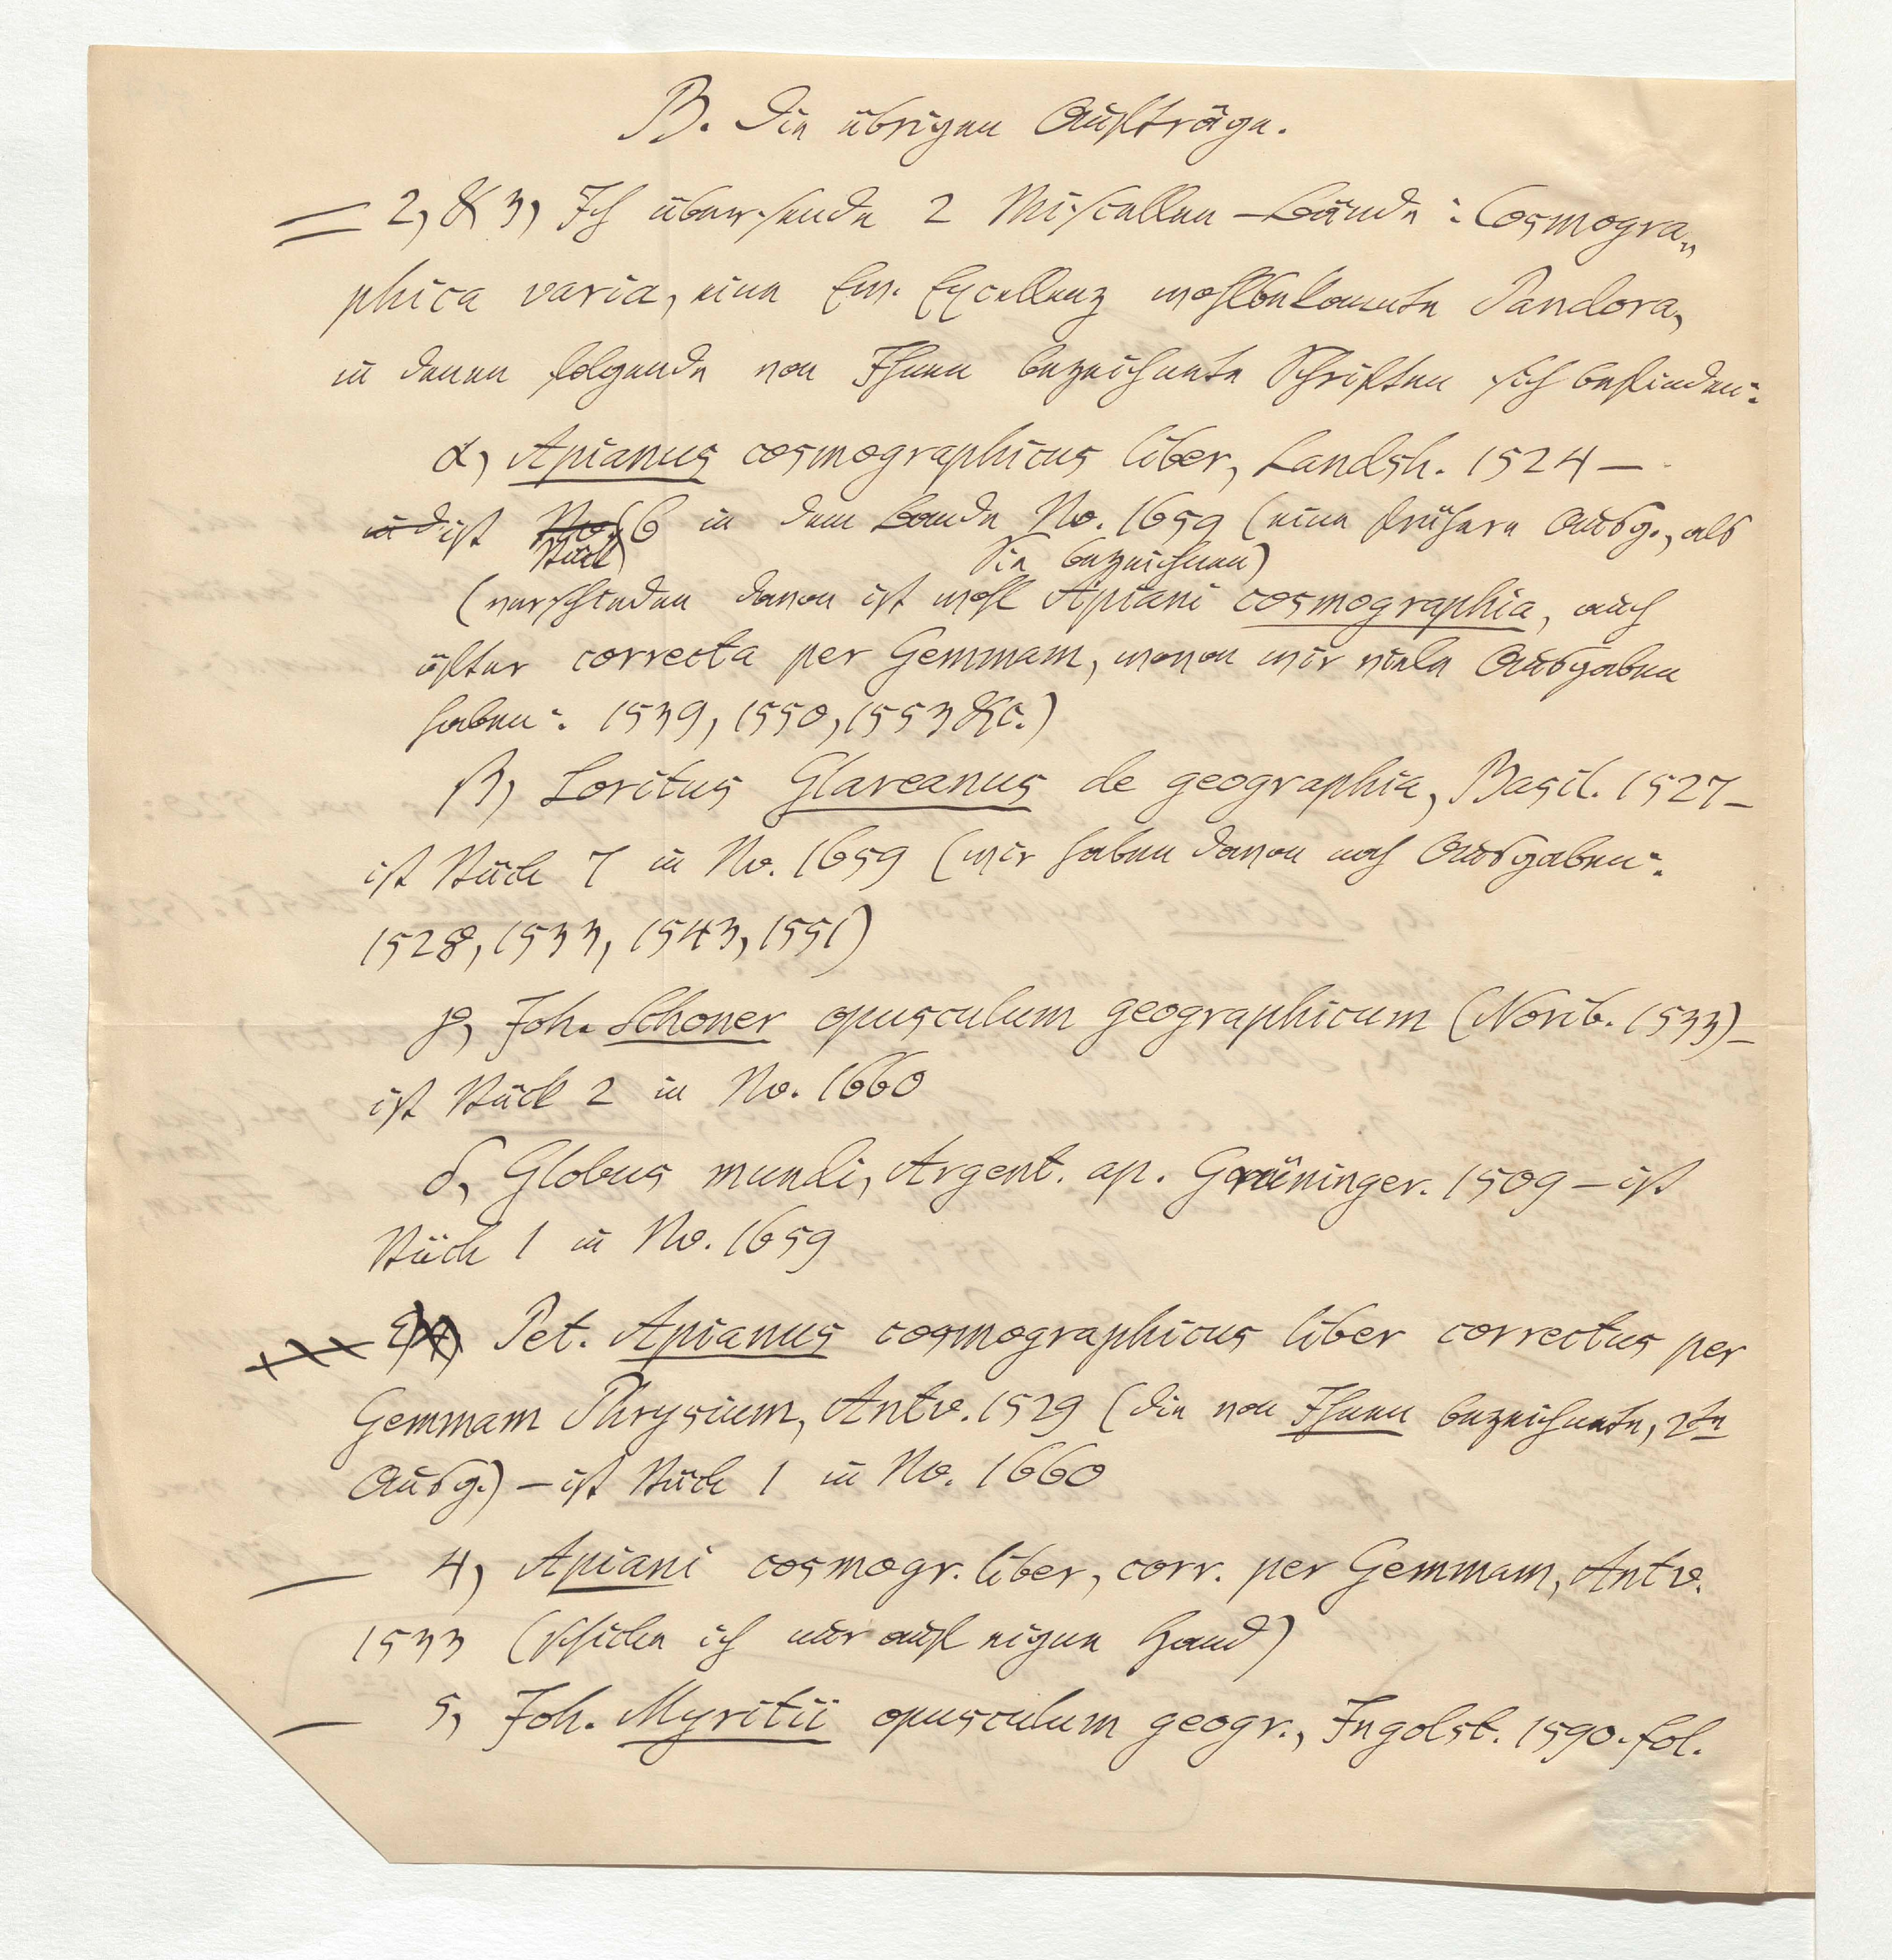 B. Die übrigen Aufträge.
2, & 3, Ich übersende 2 Miscellen-Bände: Cosmogra„
phica varia, eine Ew. Excellenz wohlbekannte Pandora,
in denen folgende von Ihnen bezeichnete Schriften sich befinden:
α, Apianus cosmographicus liber, Landsh. 1524 —
ist Stück 6 in dem Bande No. 1659 (eine frühere Ausg., als
Sie bezeichnen)
(verschieden davon ist wohl Apiani cosmographia, auch
öfter correcta per Gemmam, wovon wir viele Ausgaben
haben: 1539, 1550, 1553 &c.)
β, Loritus Glareanus de geographia, Basil. 1527 —
ist Stück 7 in No. 1659 (wir haben davon noch Ausgaben:
1528, 1533, 1543, 1551)
γ, Joh. Schoner opusculum geographicum (Norib. 1533) —
ist Stück 2 in No. 1660
δ, Globus mundi, Argent. ap. Grüninger. 1509 — ist
Stück 1 in No. 1659
ε, Pet. Apianus cosmographicus liber correctus per
Gemmam Phrysium, Antv. 1529 (die von Ihnen bezeichnete, 2te
Ausg.) — ist Stück 1 in No. 1660
4, Apiani cosmogr. liber, corr. per Gemmam, Antv.
1533 (schicke ich nur auf eigne Hand)
5, Joh. Myritii opusculum geogr., Ingolst. 1590. fol.